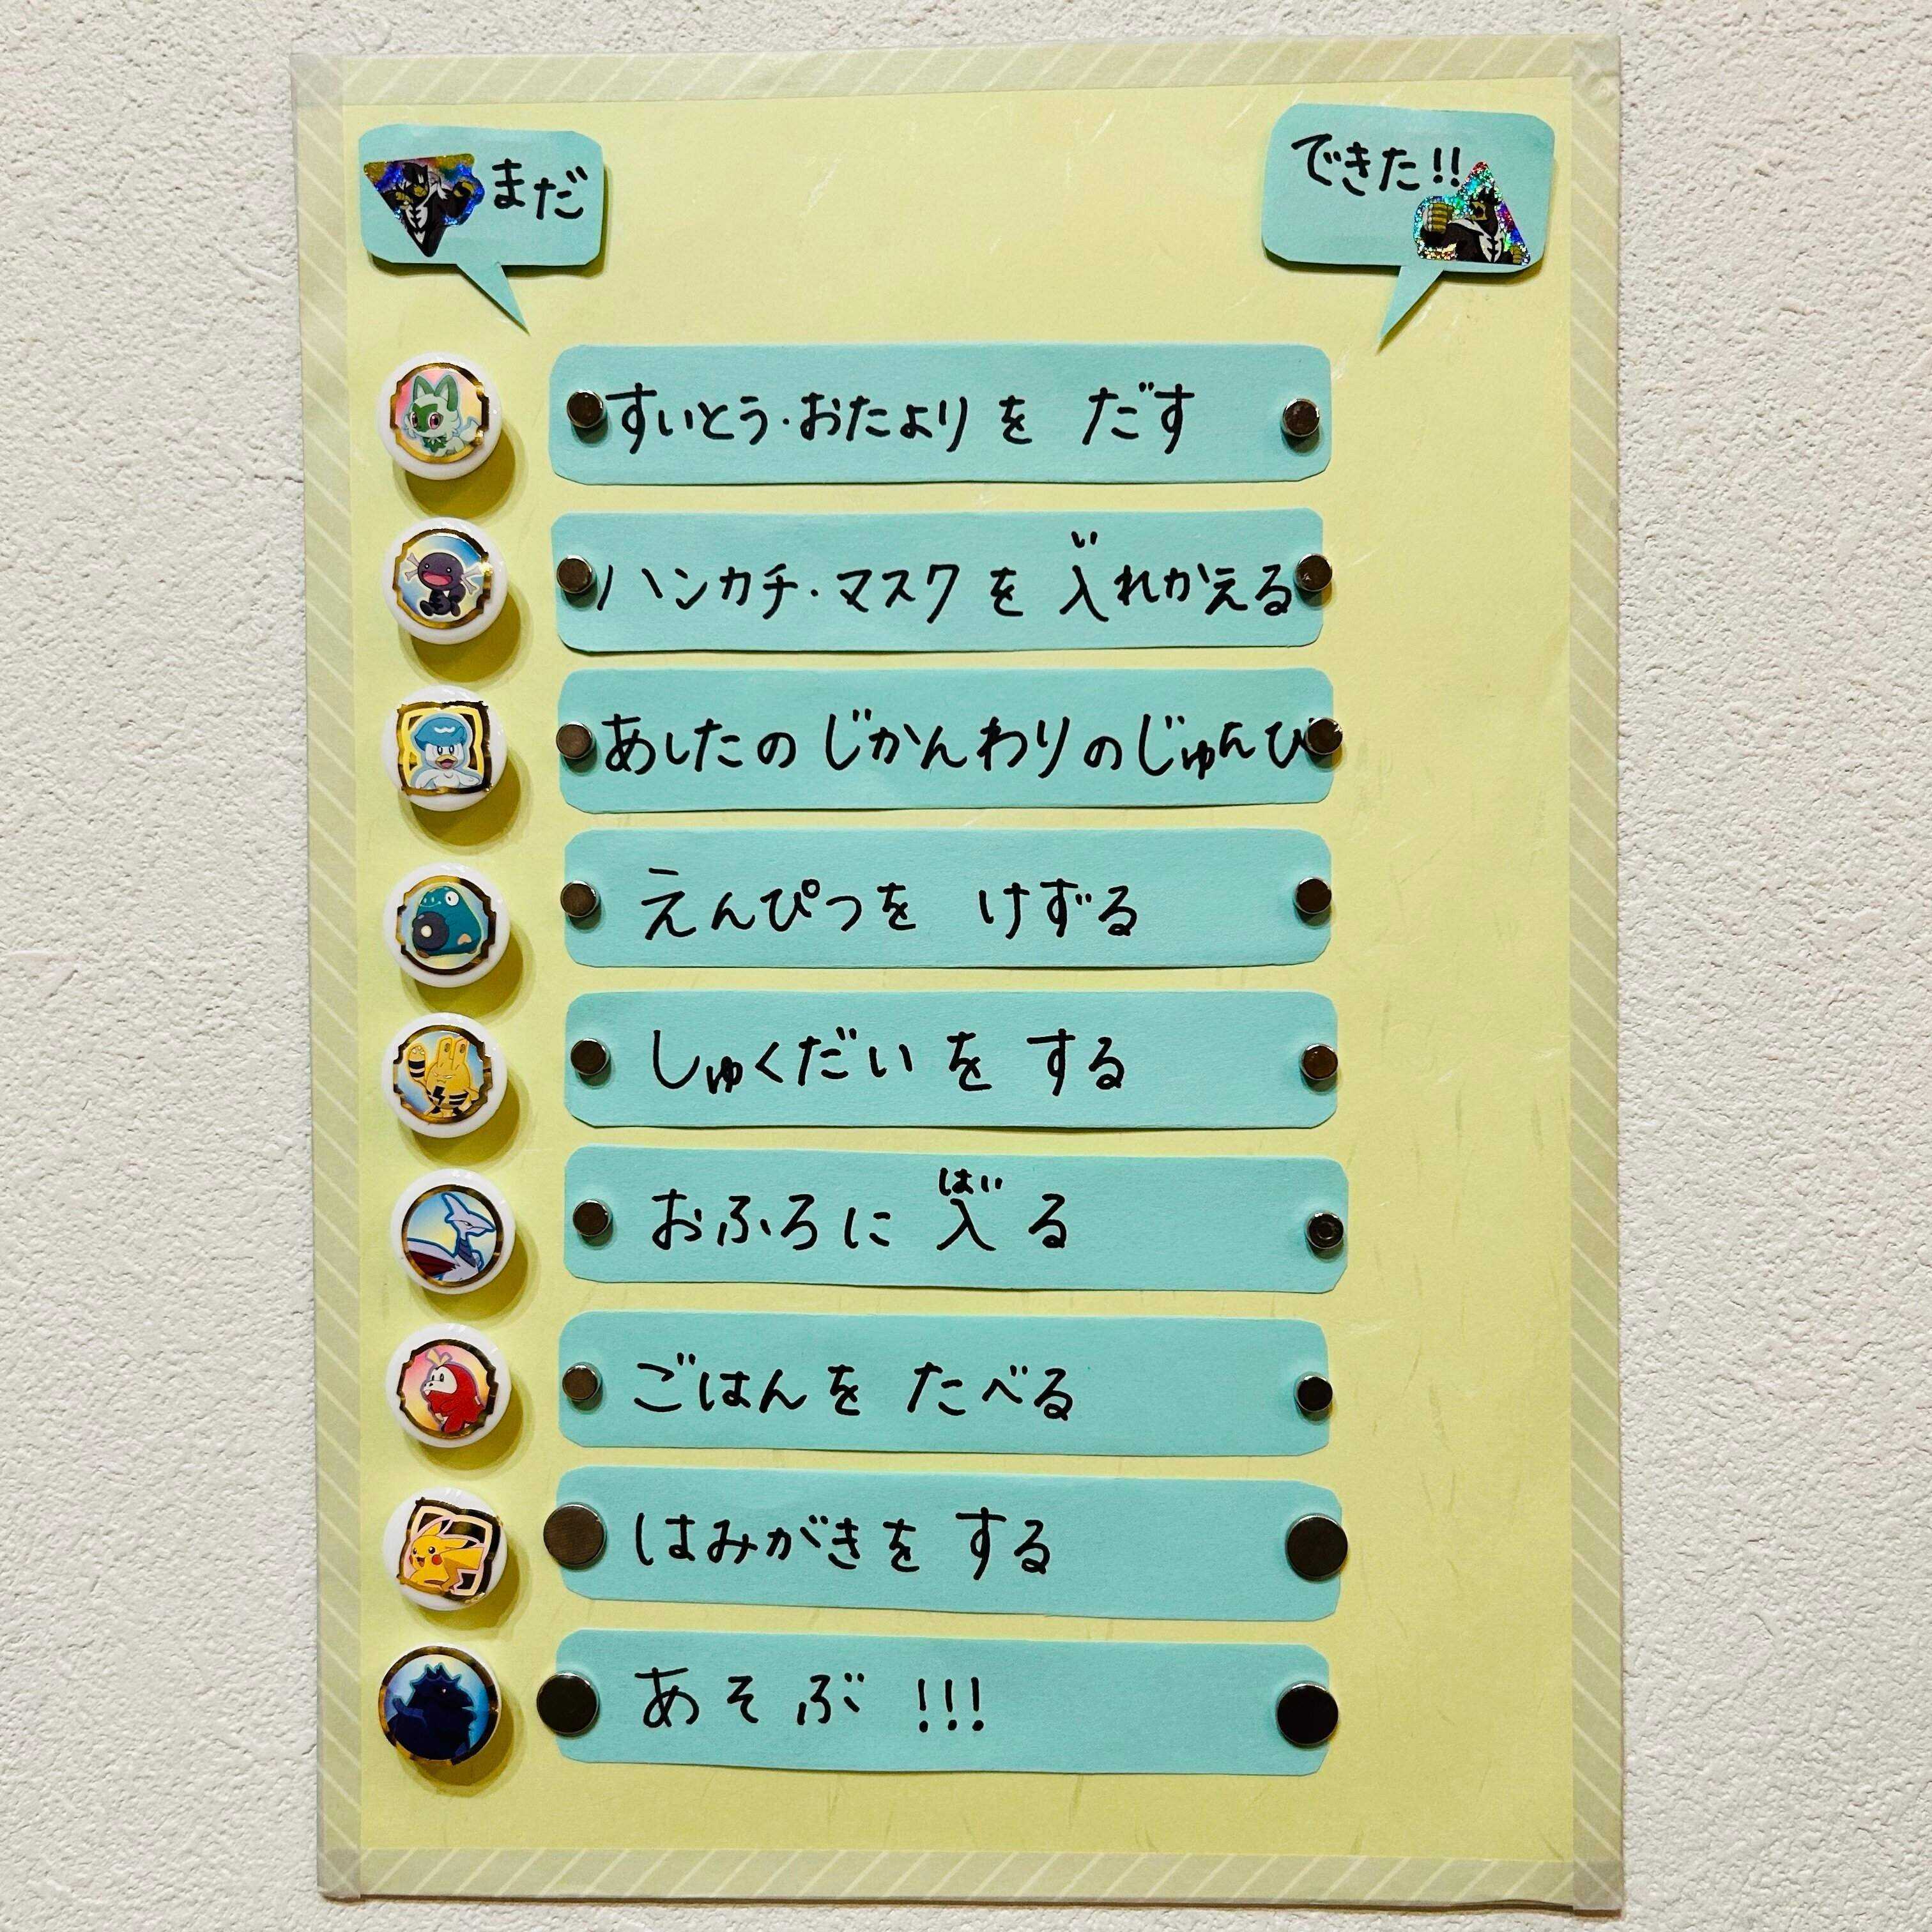 まだ
できた!!
すいとう・おたよりを だす
ハンカチ・マスクを 入れかえる
い
あしたのじかんわりのじゅんび
えんぴつを けずる
しゅくだいを する
おふろに 入る
はい
ごはんを たべる
はみがきを する
あそぶ !!!